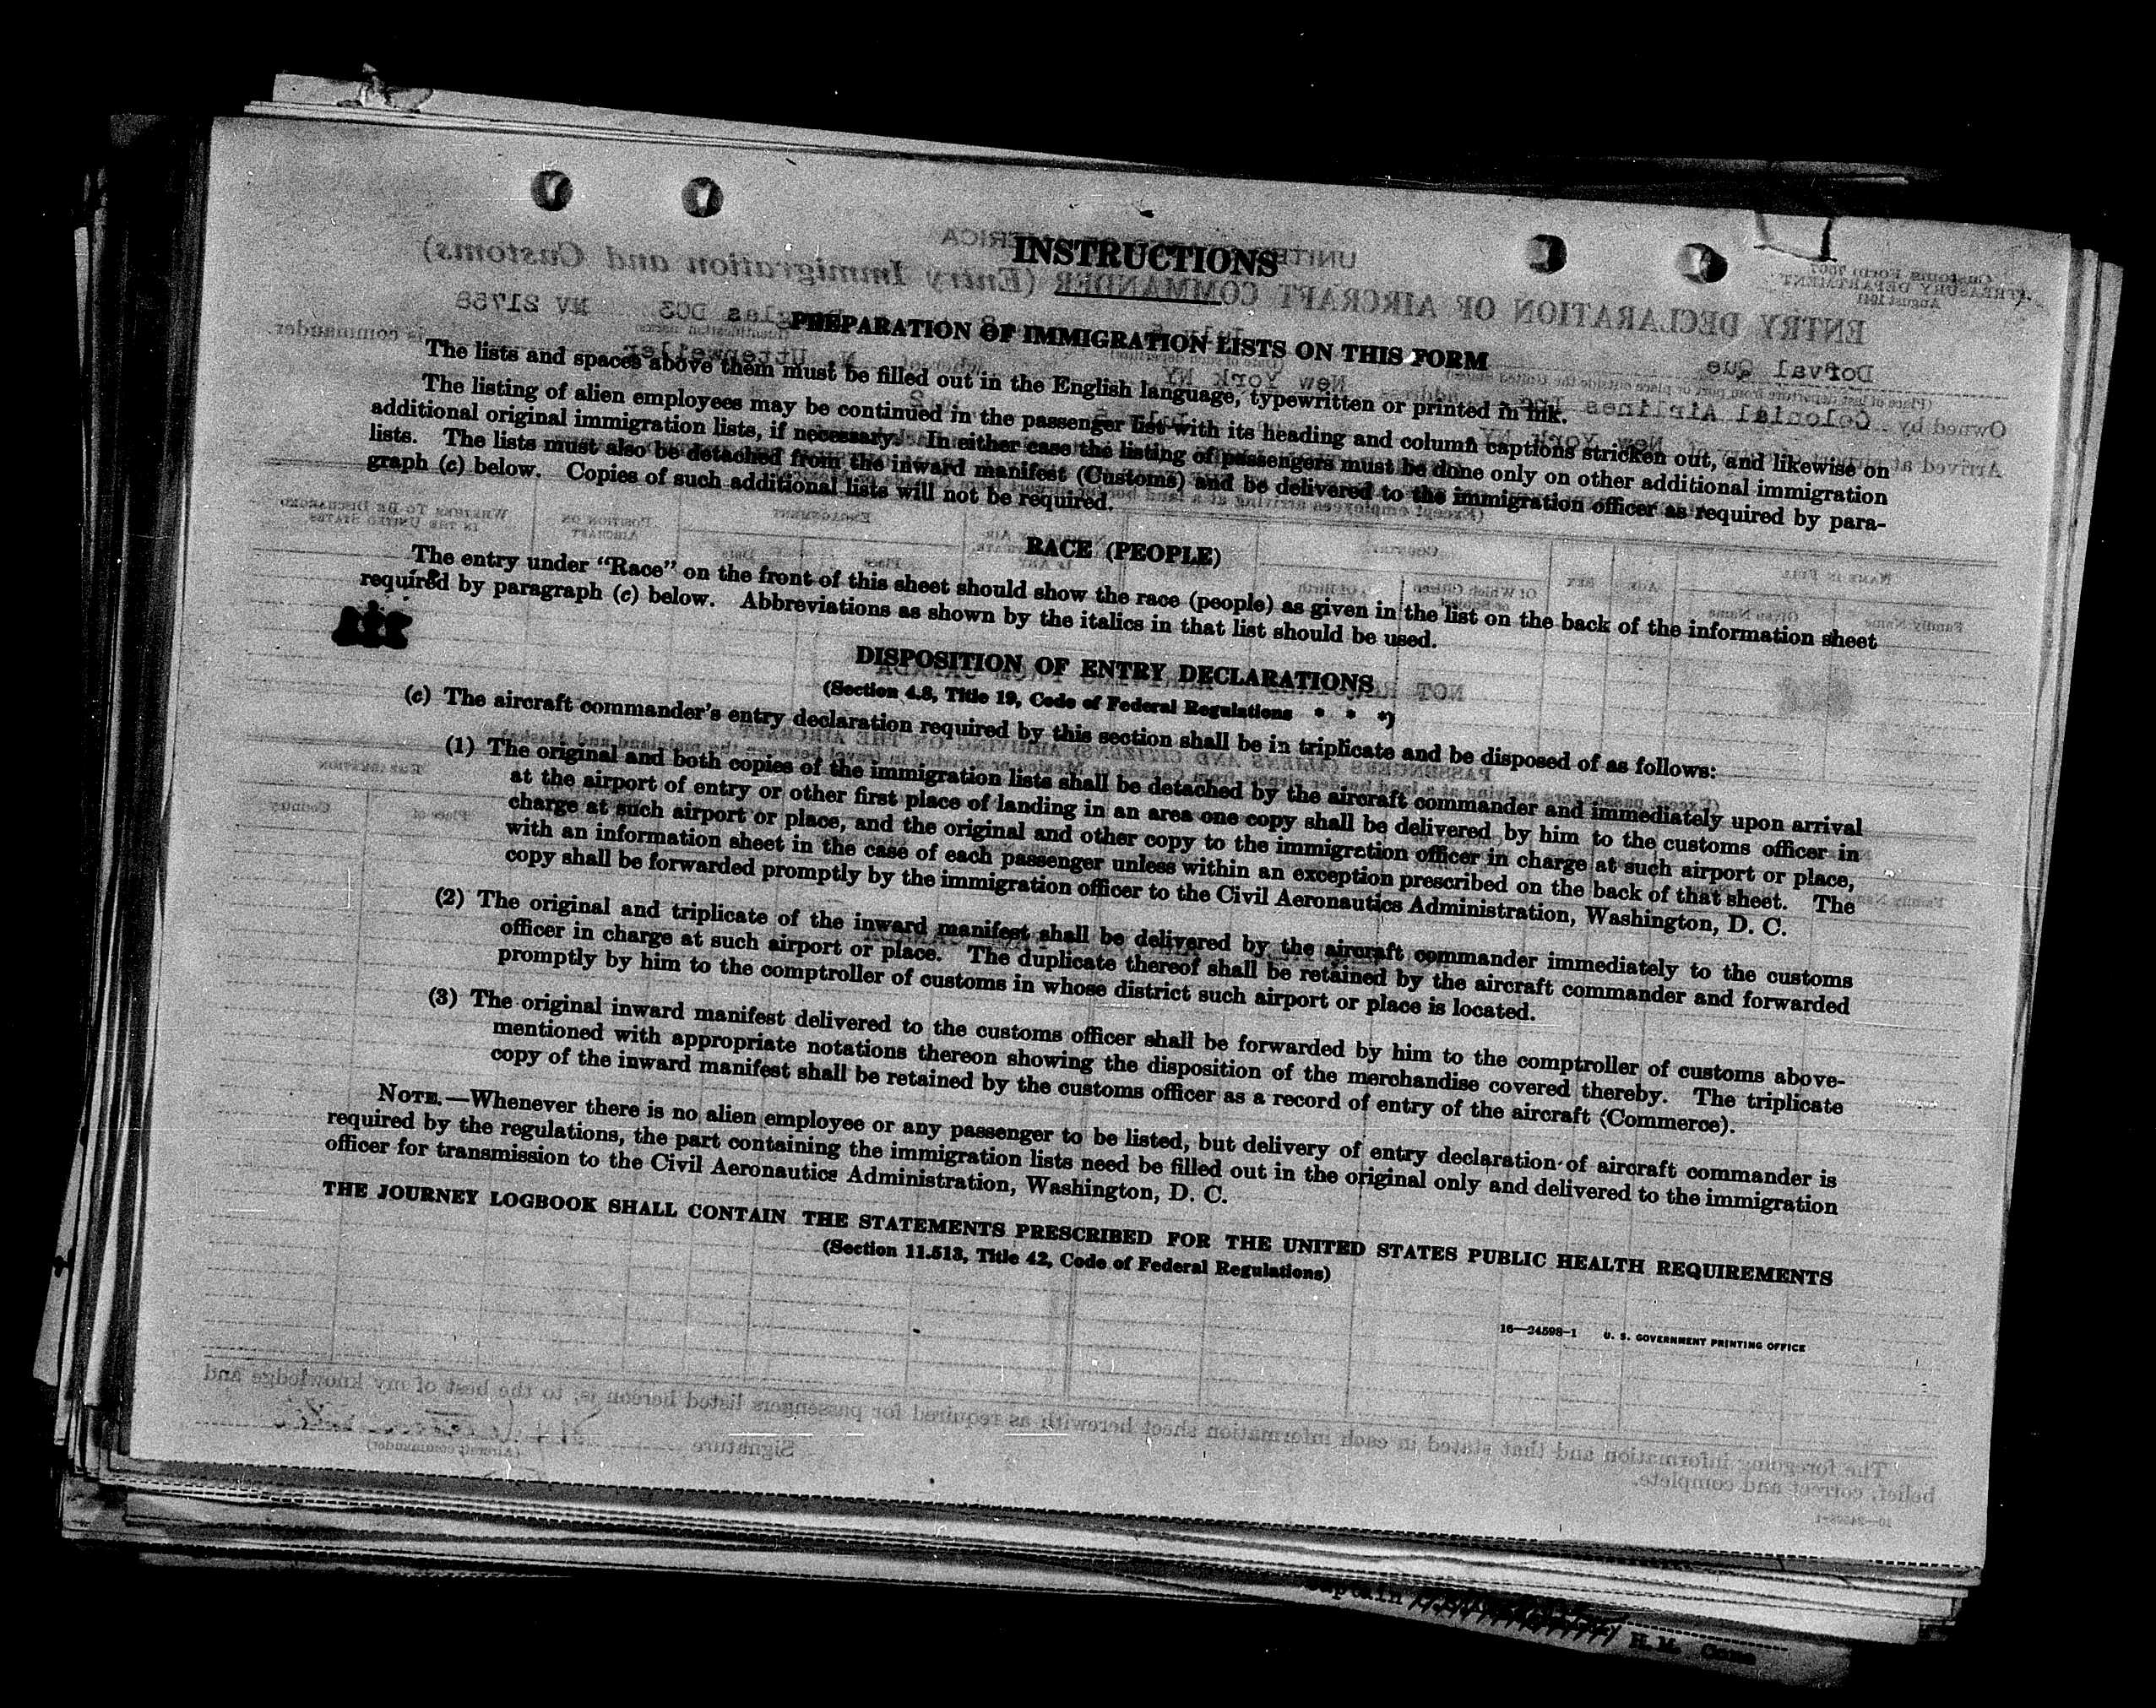 INSTRUCTIONS
PREPARATION OF IMMIGRATION LISTS ON THIS FORM
The lists and spaces above them must be filled out in the English language, typewritten or printed in ink.
The listing of alien employees may be continued in the passenger list with its heading and column captions stricken out, and likewise on
additional original immigration lists, if necessary. In either case the listing of passengers must be done only on other additional immigration
lists. The lists must also be detached from the inward manifest (Customs) and be delivered to the immigration officer as required by para-
graph (c) below. Copies of such additional lists will not be required.
RACE (PEOPLE)
The entry under "Race" on the front of this sheet should show the race (people) as given in the list on the back of the information sheet
required by paragraph (c) below. Abbreviations as shown by the italics in that list should be used.
DISPOSITION OF ENTRY DECLARATIONS
(Section 4.8, Title 19, Code of Federal Regulations * * *)
(c) The aircraft commander's entry declaration required by this section shall be in triplicate and be disposed of as follows:
(1) The original and both copies of the immigration lists shall be detached by the aircraft commander and immediately upon arrival
at the airport of entry or other first place of landing in an area one copy shall be delivered by him to the customs officer in
charge at such airport or place, and the original and other copy to the immigration officer in charge at such airport or place,
with an information sheet in the case of each passenger unless within an exception prescribed on the back of that sheet. The
copy shall be forwarded promptly by the immigration officer to the Civil Aeronautics Administration, Washington, D. C.
(2) The original and triplicate of the inward manifest shall be delivered by the aircraft commander immediately to the customs
officer in charge at such airport or place. The duplicate thereof shall be retained by the aircraft commander and forwarded
promptly by him to the comptroller of customs in whose district such airport or place is located.
(3) The original inward manifest delivered to the customs officer shall be forwarded by him to the comptroller of customs above-
mentioned with appropriate notations thereon showing the disposition of the merchandise covered thereby. The triplicate
copy of the inward manifest shall be retained by the customs officer as a record of entry of the aircraft (Commerce).
NOTE.—Whenever there is no alien employee or any passenger to be listed, but delivery of entry declaration of aircraft commander is
required by the regulations, the part containing the immigration lists need be filled out in the original only and delivered to the immigration
officer for transmission to the Civil Aeronautics Administration, Washington, D. C.
THE JOURNEY LOGBOOK SHALL CONTAIN THE STATEMENTS PRESCRIBED FOR THE UNITED STATES PUBLIC HEALTH REQUIREMENTS
(Section 11.513, Title 42, Code of Federal Regulations)
16—24598-1 U. S. GOVERNMENT PRINTING OFFICE
Captain H.M.